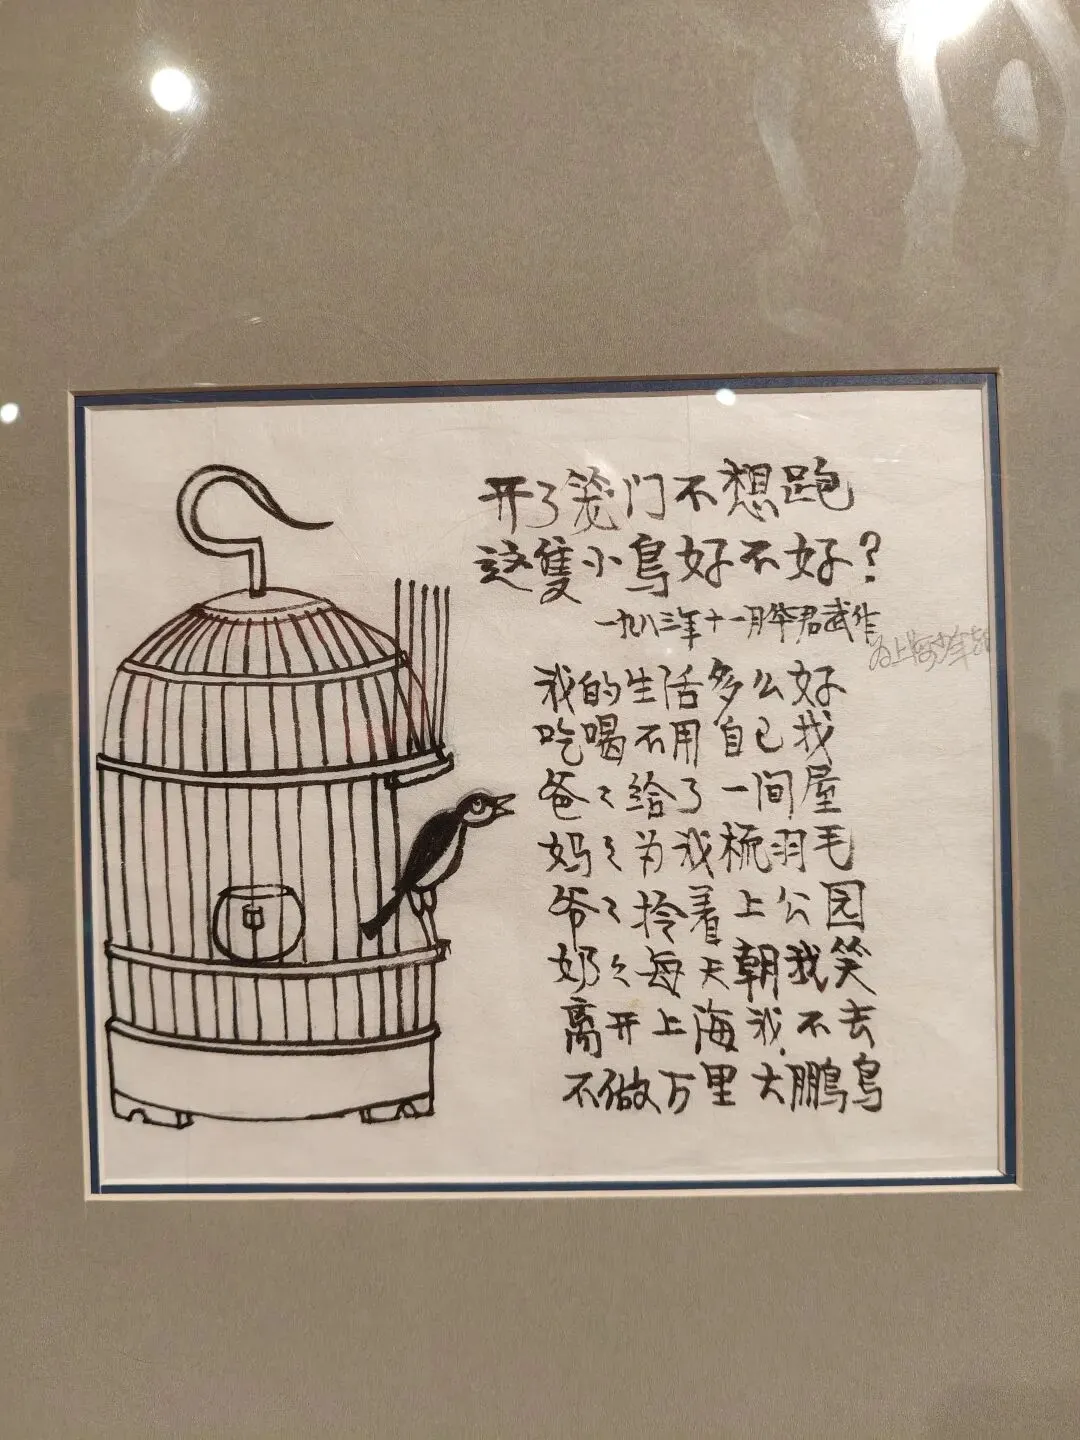 开了笼门不想跑
这隻小鸟好不好？
一九八三年十一月华君武作
为上海少年
我的生活多么好
吃喝不用自己找
爸々给了一间屋
妈々为我梳羽毛
爷々拎着上公园
奶々每天朝我笑
离开上海我不去
不做万里大鹏鸟